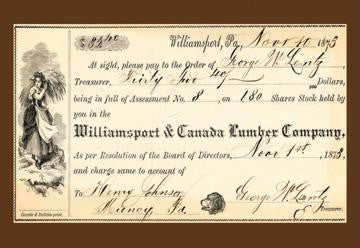 $ 32 40
Williamsport, Pa, Novr 10 1873
At sight, please pay to the Order of George W. Lentz
Treasurer, Thirty Two 40/100 Dollars,
being in full of Assessment No. 8, on 180 Shares Stock held by
you in the
Williamsport & Canada Lumber Company,
As per Resolution of the Board of Directors, Novr 1st, 1873,
and charge same to account of
To Henry Johnson
Muncy Pa.
George W. Lentz
Treasurer.
Gazette & Bulletin print.